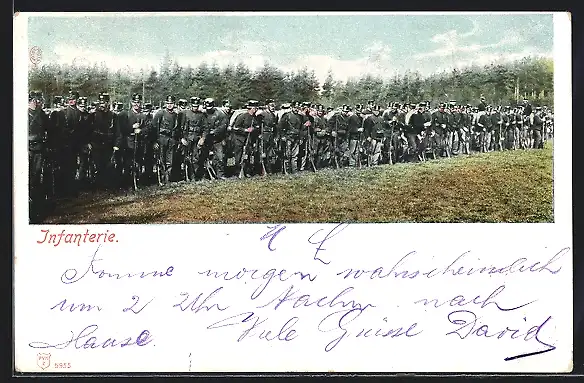 Infanterie.
M L
Komme morgen wahrscheinlich
um 2 Uhr Nachm nach
Hause. Viele Grüsse David
5955